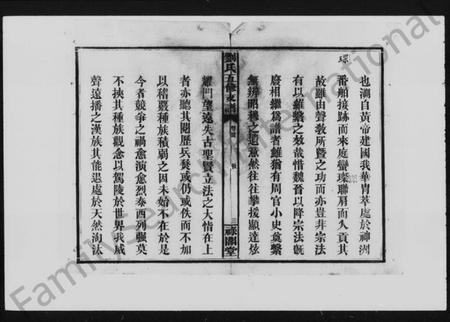 也溯自黃帝建國我華胄萃處於神洲
環
番舶接跡而來庭蠻琛聯肩而入貢其
故雖由聲敎所曁之功而亦豈非宗法
有以維繫之效哉惜魏晉以降宗法旣
廢相繼爲譜者雖猶有周官小史奠繫
世辨昭穆之遺意然往往攀援顯達炫
劉氏五修支譜
三
祿閣堂
耀門望遠失古聖賢立法之大情在上
者亦聽其閱歷兵燹或仍或佚而不加
以稽覈種族積弱之因未始不在於是
今者競爭之禍愈演愈烈泰西列強莫
不挾其種族觀念以駕陵於世界我威
聲遠播之漢族其能退處於天然淘汰
FamilySearch International